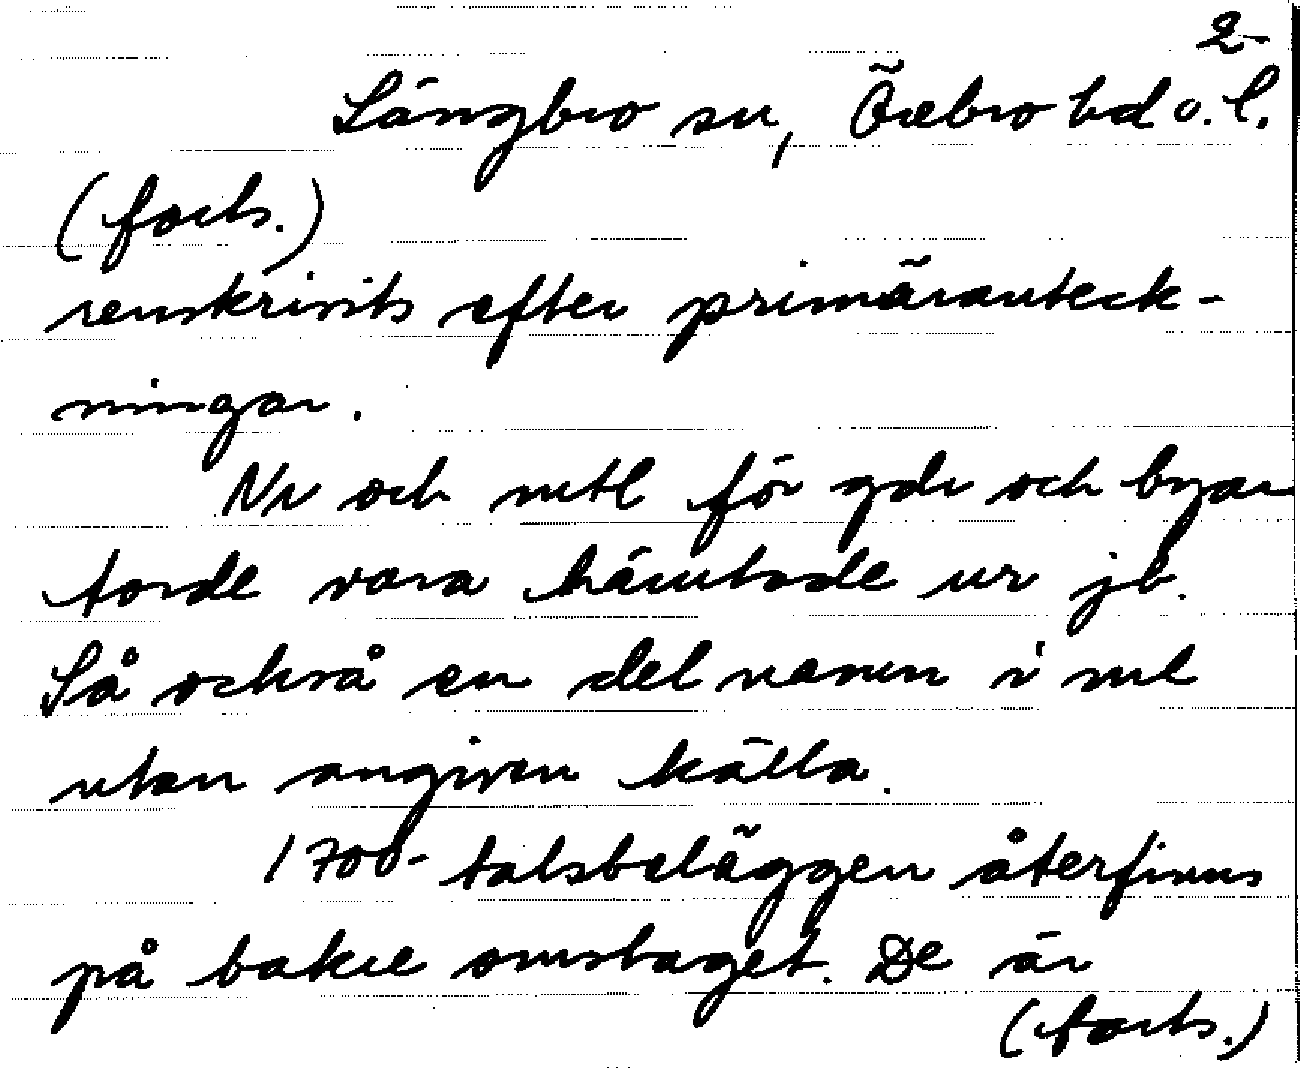 2
Längbro sn, Örebro hd o. l.
(forts.)
renskrivits efter primäranteck-
ningar.
Nr och mtl för gdr och byar
torde vara hämtade ur jb.
Så också en del namn i ml
utan angiven källa.
1700-talsbeläggen återfinns
på bakre omslaget. De är
(forts.)